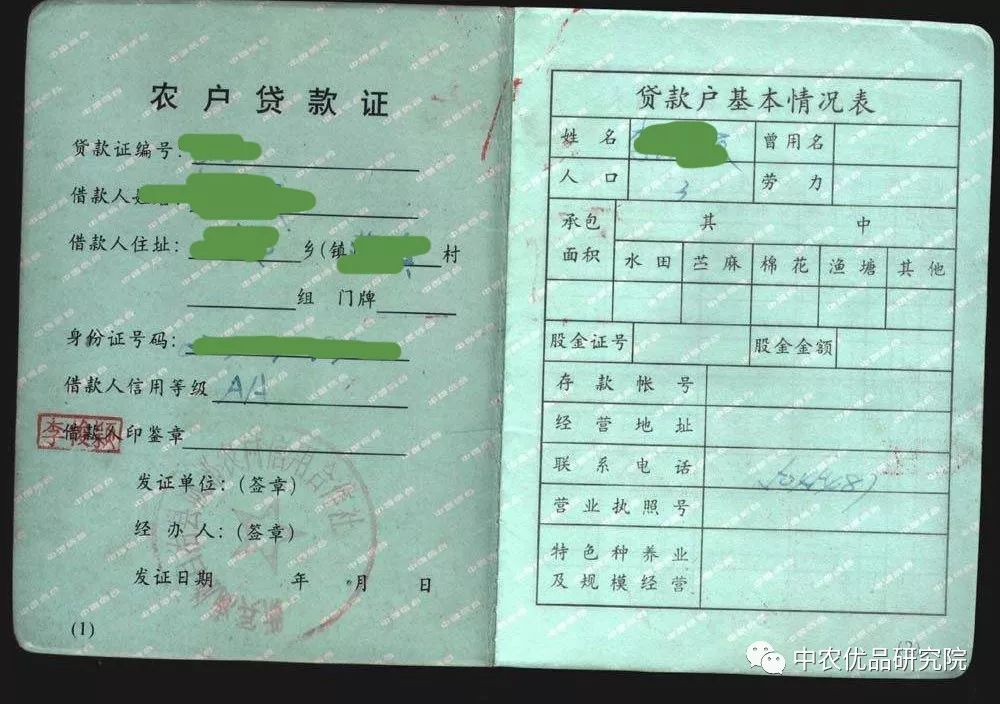 农户贷款证
贷款证编号:
借款人
借款人住址: 乡(镇) 村
组 门牌
身份证号码:
借款人信用等级 AA
借款人印鉴章
发证单位:(签章)
经办人:(签章)
发证日期 年 月 日
(1)
贷款户基本情况表
姓名 曾用名
人口 3 劳力
承包面积 其中
水田 苎麻 棉花 渔塘 其他
股金证号 股金金额
存款帐号
经营地址
联系电话
营业执照号
特色种养业
及规模经营
中农优品研究院